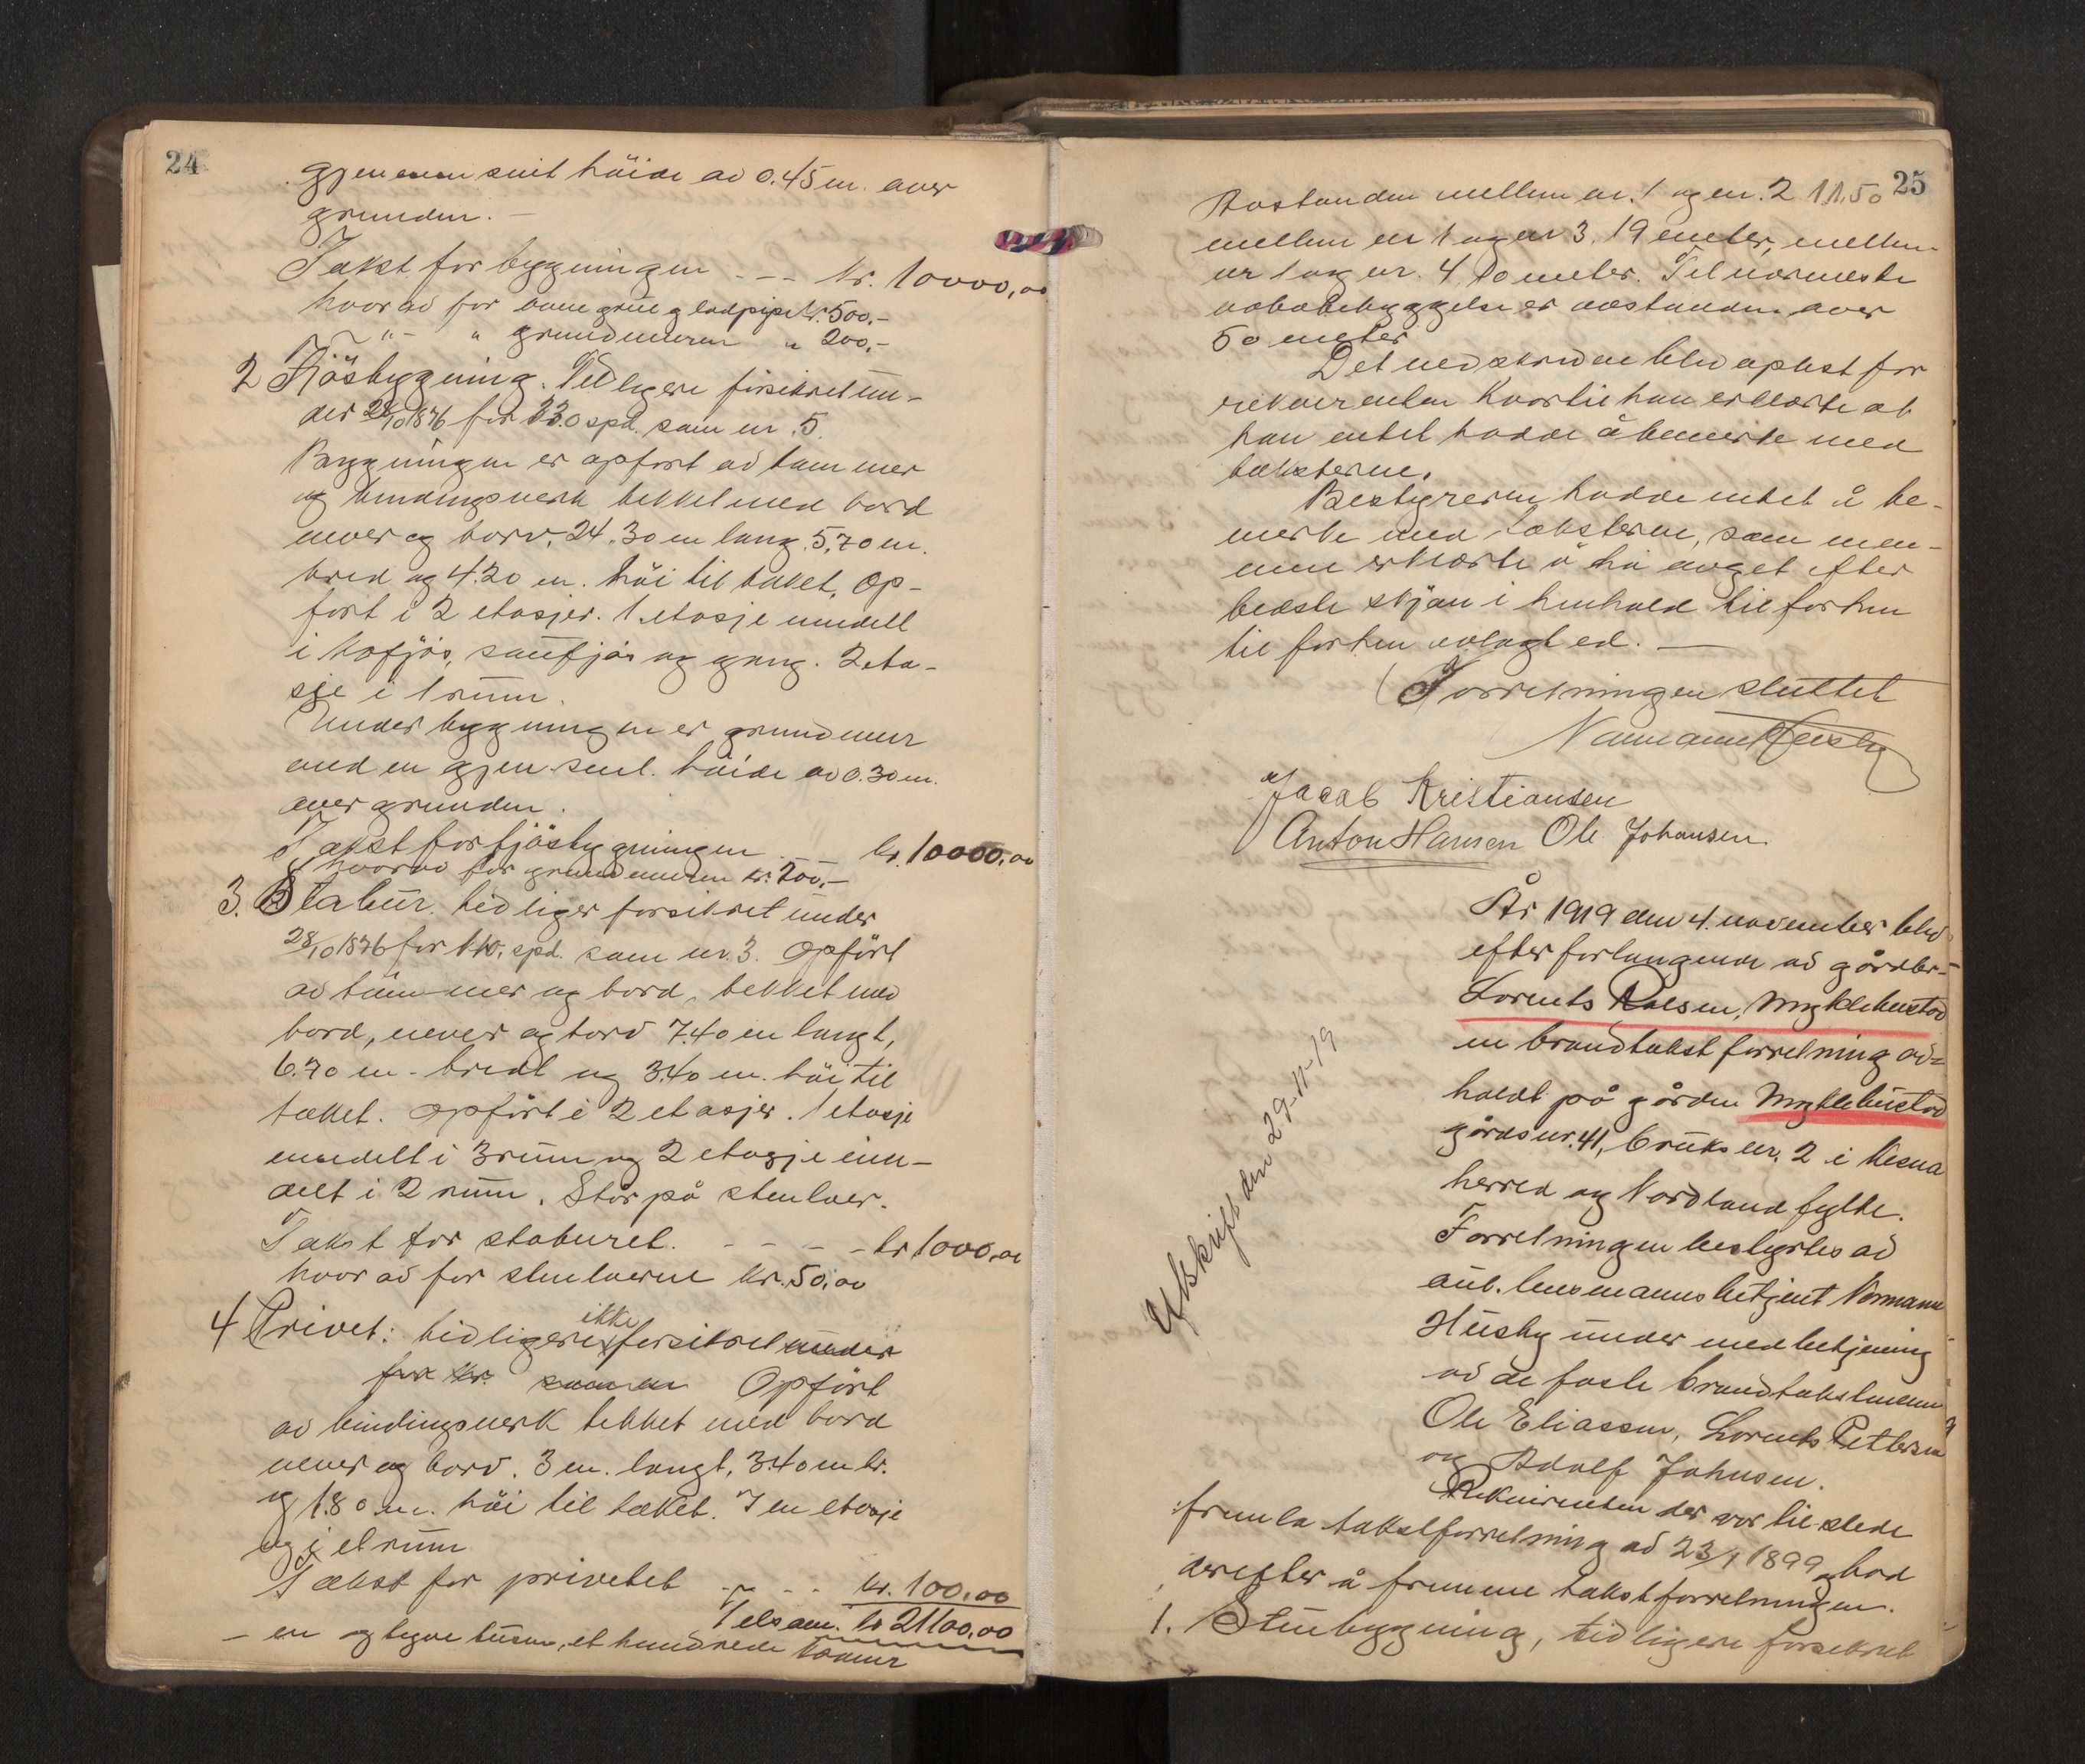 24
gjennemsnit höide av 0.45 m. over
grunden. —
Takst for bygningen - - - kr. 10000,00
hvorav for komgrue og ladpipe kr. 500.-
" - " grundmuren " 200.-
2 Fjösbygning. Tidligere forsikret un-
der 28/10 1876 for 330 spd. som nr. 5.
Bygningen er opfört av tömmer
og bindingsverk tekket med bord
never og torv, 24.30 m lang, 5,70 m.
bred og 4.20 m. höi til taket. Op-
fört i 2 etasjer. 1 etasje inndelt
i kofjös, saufjös og gang. 2 eta-
sje i 1 rum.
Under bygningen er grundmur
med en gjen.snit. höide av 0.30 m.
over grunden.
Takst for fjösbygningen kr. 10000,00
hvorav for grundmuren kr. 200.-
3. Stabur. tidligere forsikret under
28/10 1876 for 110, spd. som nr. 3. Opfört
av tömmer og bord, tekket med
bord, never og torv 7.40 m langt,
6.70 m. bredt og 3.40 m. höi til
taket. Opfört i 2 etasjer. 1 etasje
inndelt i 3 rum og 2 etasje inn-
delt i 2 rum. Står på stenloer.
Takst for staburet. - - - - kr 1000,00
hvorav for stenloerne kr. 50,00
4 Privet: tidligere ikke forsikret under
for kr. som nr Opfört
av bindingsverk tekket med bord
never og torv. 3 m. langt, 3.40 m br.
og 1.80 m. höi til taket. I en etasje
og i et rum
Takst for privetet - - - kr. 100,00
Tilsam. kr 21100,00
— en og tyve tusen, et hundrede kroner
25
Avstanden mellem nr. 1 og nr. 2 11,50
mellem nr 1 og nr 3, 19 meter, mellem
nr 1 og nr. 4 10 meter. Til nærmeste
nabobebyggelse er avstanden over
50 meter
Det nedskrevne blev oplest for
rekvirenten hvortil han erklærte at
han intet hadde å bemerke med
taksterne.
Bestyreren hadde intet å be-
merke med taksterne, som men-
nene erklærte å ha avget efter
bedste skjön i henhold til forhen
til forhen avlagt ed. —
Forretningen sluttet
Normann Husby
Jacob Kristiansen
Anton Hansen Ole Johansen
År 1919 den 4. november blev
efter forlangende av gårdbr.
Lorents Olsen, Myklebustad
en brandtakst forretning av-
holdt på gården Myklebustad
gårdsnr. 41, bruks nr. 2 i Nesna
herred og Nordland fylke.
Forretningen bestyrtes av
aut. lensmannsbetjent Normann
Husby under medbetjening
av de faste brandtakstmenn
Ole Eliassen, Lorents Pettersen
og Adolf Johnsen.
Rekvirenten der var tilstede
fremla takstforretning av 23/1 1899 og bad
derefter å fremme takstforretningen.
1. Stuebygning, tidligere forsikret
Utskrift den 29-11-19